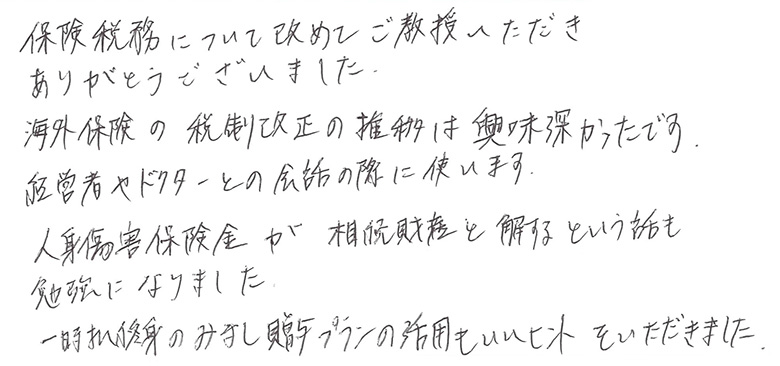 保険税務について改めてご教授いただき
ありがとうございました.
海外保険の税制改正の推移は興味深かったです.
経営者やドクターとの会話の際に使います.
人身傷害保険金が相続財産と解するという話も
勉強になりました.
一時払終身のみなし贈与プランの活用もいいヒントをいただきました.